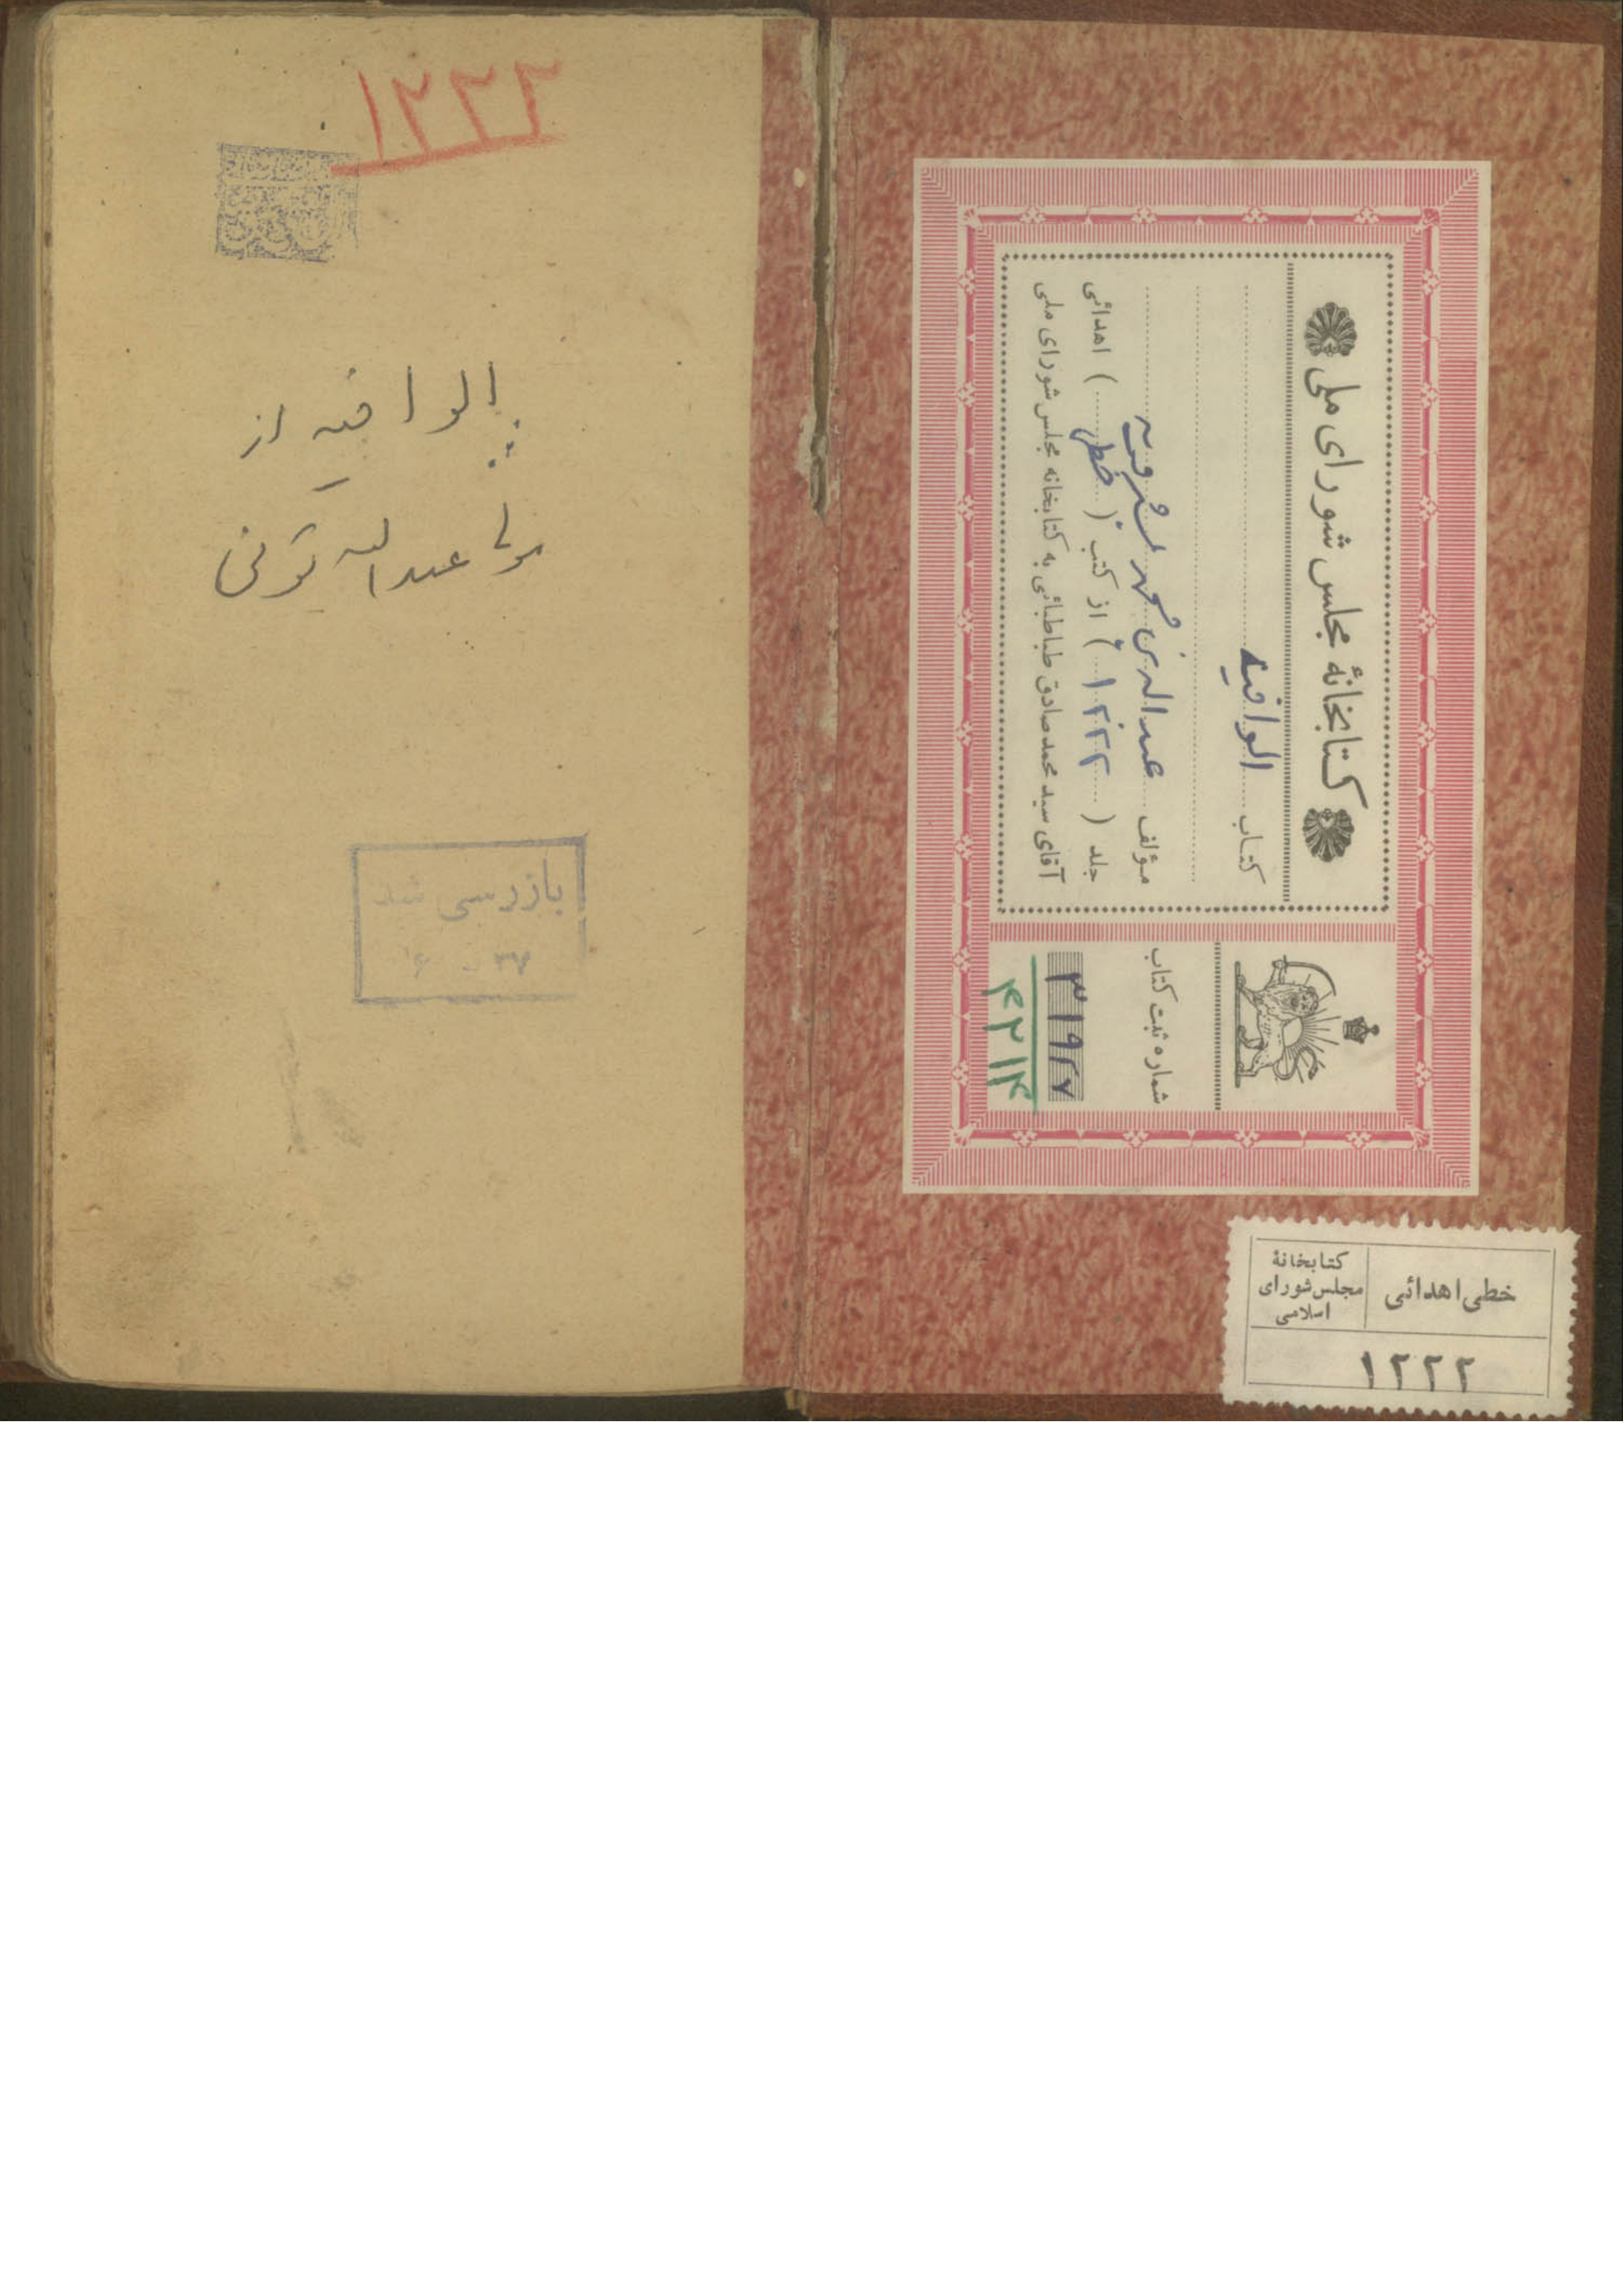 کتابخانهٔ مجلس شورای ملی
کتاب الوافیه
مؤلف عبدالله بن محمد بشروی
جلد ( ۱۲۲۲ ) از کتب ( خطی ) اهدائی
آقای سید محمد صادق طباطبائی به کتابخانه مجلس شورای ملی
شماره ثبت کتاب
۳۱۹۲۷
۴۲۱۴
خطی اهدائی
کتابخانهٔ
مجلس شورای
اسلامی
۱۲۲۲
۱۲۲۲
الوافیه از
مولا عبدالله تونی
بازرسی شد
۳۷ - ۶